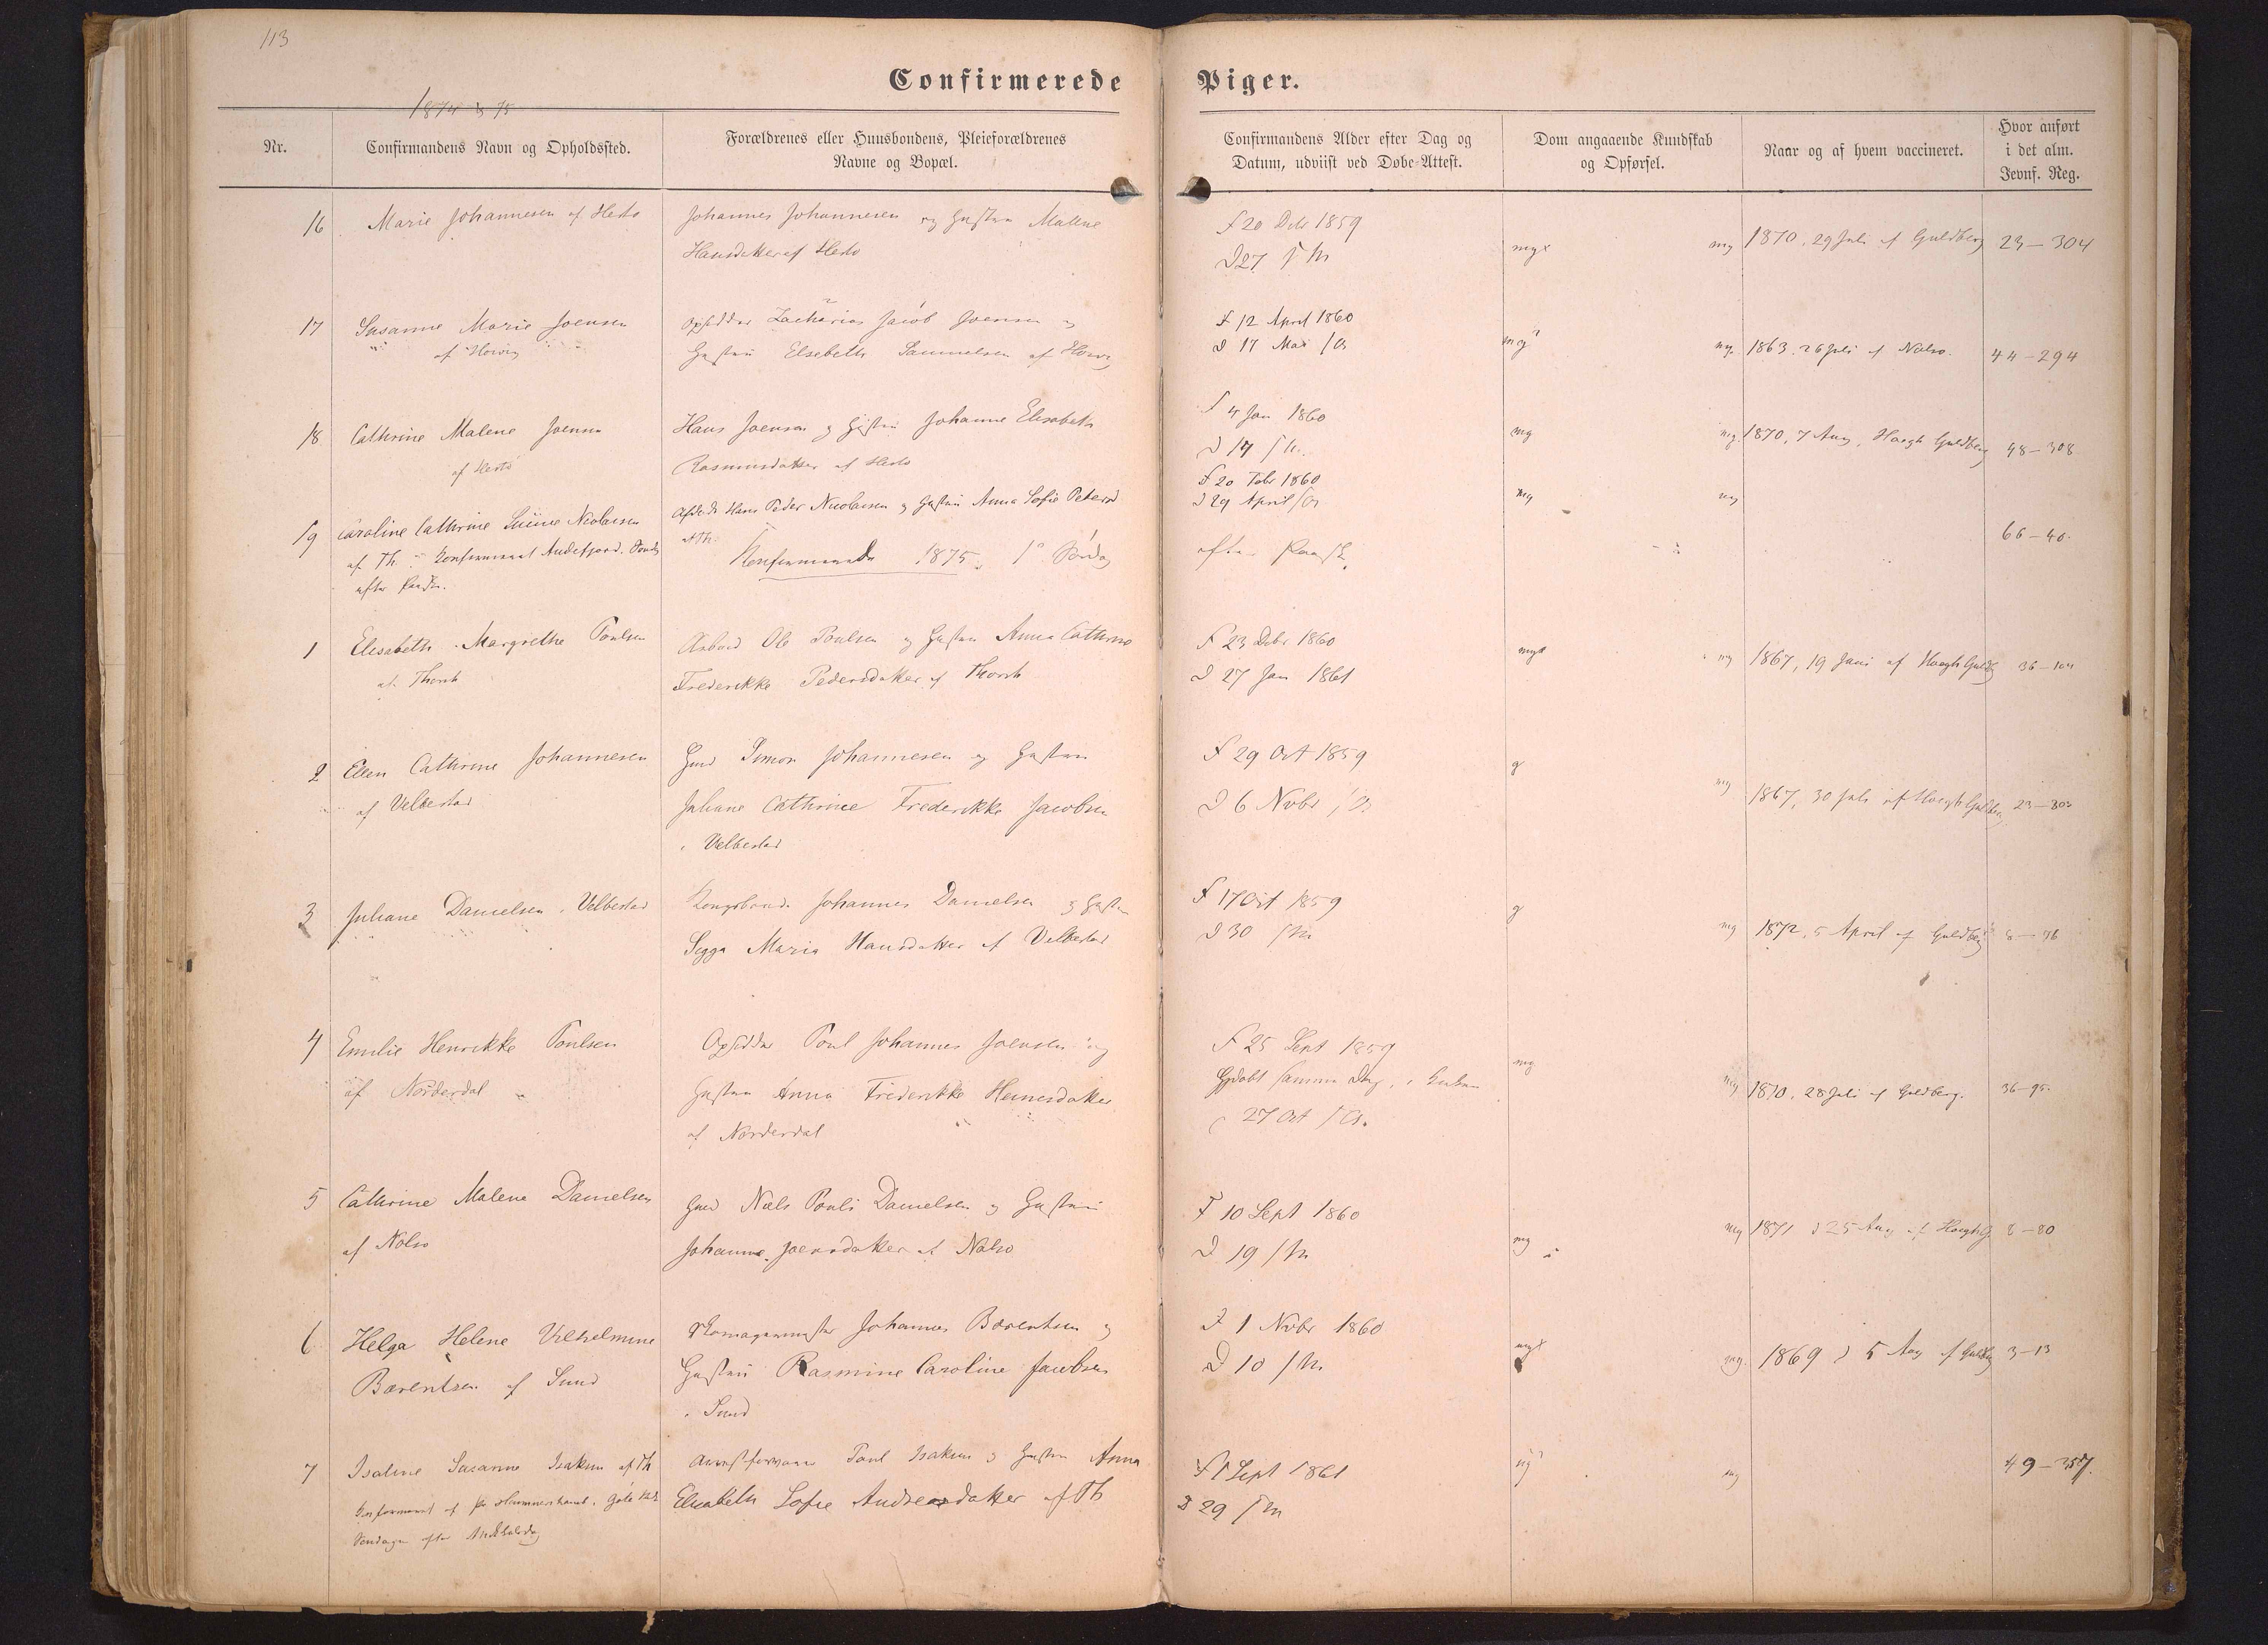 113
Confirmerede Piger.
1874 & 75
Nr.
Confirmandens Navn og Opholdssted.
Forældrenes eller Huusbondens, Pleieforældrenes
Navne og Bopæl.
Confirmandens Alder efter Dag og
Datum, udviist ved Døbe-Attest.
Dom angaaende Kundskab
og Opførsel.
Naar og af hvem vaccineret.
Hvor anført
i det alm.
Jevnf. Reg.
16 Marie Johannesen af Hestø
Johannes Johannesen og Hustru Malene
Hansdatter af Hestø
F 20 Debr 1859
D 27 s M
mgx mg 1870, 29 Juli af Guldberg 23-304
17 Susanne Marie Joensen
af Hoivig
Opsidder Zacharias Jacob Joensen og
Hustru Elsebeth Samuelsen af Hoivig
F 12 April 1860
D 17 Mai s A
mg? mg. 1863, 26 Juli af Nolsø. 44-294
18 Cathrine Malene Joensen
af Hestø
Hans Joensen og Hustru Johanne Elisabeth
Rasmusdatter af Hestø
F 4 Jan 1860
D 14 s M.
mg mg. 1870, 7 Aug, Høegh Guldberg 48-308
19 Caroline Cathrine Nicolaisen
af Th Konfirmeret Andefjord. Søndag
efter Paaske.
Hans Peder Nicolaisen og Hustru Anna Sofie Petersd
af Th.
F 20 Febr 1860
D 29 April s A
mg mg
66-40.
Konfirmerede 1875, 1ste Søndag
efter Paaske.
1 Elisabeth Margrethe Poulsen
af Thorsh
Ole Poulsen og Hustru Anna Cathrine
Frederikke Pedersdatter af Thorsh
F 23 Debr 1860
D 27 Jan 1861
mgx mg 1867, 19 Juni af Høegh Guldbg 36-104
2 Ellen Cathrine Johannesen
af Velbestad
Gmd Simon Johannesen og Hustru
Juliane Cathrine Frederikke Jacobsen
i Velbestad
F 29 Oct 1859
D 6 Nvbr s A
g mg 1867, 30 Juli af Høegh Guldberg 23-303
3 Juliane Danielsen, Velbestad
Kongsbonde Johannes Danielsen og Hustru
Sigga Maria Hansdatter af Velbestad
F 17 Oct 1859
D 30 s M
g mg 1872, 5 April af Guldberg 8-76
4 Emilie Henrikke Poulsen
af Norderdal
Opsidder Poul Johannes Joensen og
Hustru Anna Frederikke Heinesdatter
af Norderdal
F 25 Sept 1859
Hjdøbt samme Dag, i Kirken
27 Oct s A.
mg mg 1870, 28 Juli af Guldberg. 36-95.
5 Cathrine Malene Danielsen
af Nolsø
Gmd Niels Pouli Danielsen og Hustru
Johanne Joensdatter af Nolsø
F 10 Sept 1860
D 19 s M
mg mg 1871 d 25 Aug af Høegh G. 8-80
6 Helga Helene Vilhelmine
Bærentsen af Sund
Skomagermester Johannes Bærentsen og
Hustru Rasmine Caroline Jacobsen
i Sund
F 1 Nvbr 1860
D 10 s M.
mgx mg. 1869 d 5 Aug af Guldbg 3-13
7 Isaline Susanne Isaksen af Th
Konfirmeret af Pr Hammershaimb.
Søndagen efter
Arrestforvarer Poul Isaksen og Hustru Anna
Elisabeth Sofie Andreasdatter af Th
F 1 Sept 1861
D 29 s M
ug? mg
49-357.